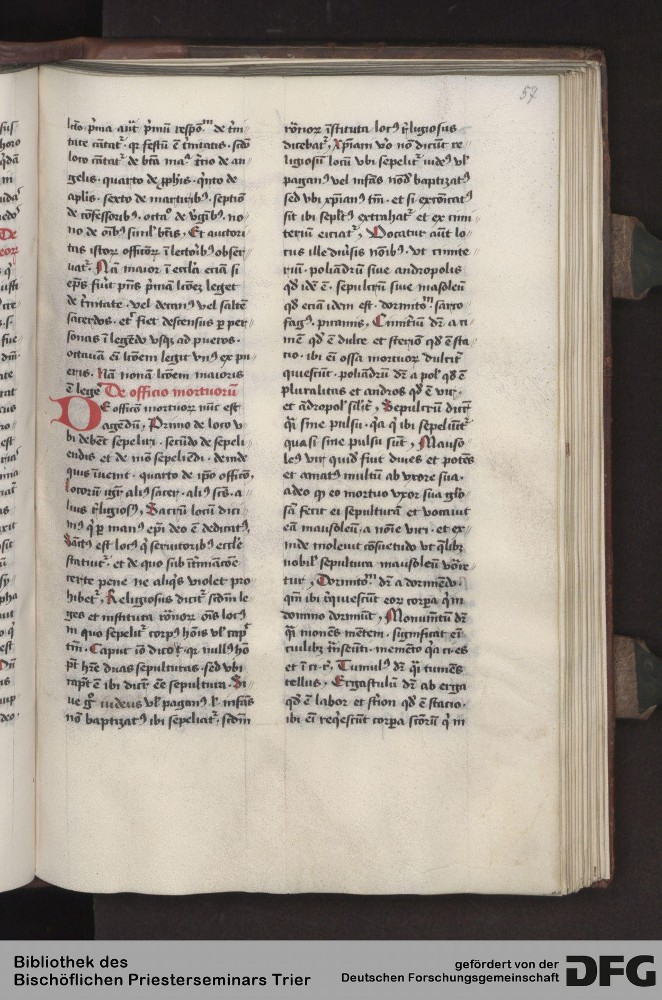 57
lcõ· pͥma aut̃ pͥmũ respõ᷒ᵐ de tͥni
tate cãtat᷑· qꝛ festũ ẽ tͥnitatis· scd̃o
loco cãtat᷑ de bt̃a maͣ· tͨio de an
gelis· quarto de ꝓphis· qͥnto de
apl̃is· sexto de martiribꝯ· septiõ
de cõfessoribꝯ· octaͦ de vͥgĩbꝯ· no
no de oĩbꝯ siml̃ bt̃is· Et auctori
tas istoꝝ officõꝝ ĩ lectoribꝯ obser
uat᷑· Nã maior ĩ eccl̃a eciã si
ep̃s fuit̃ pñs pͥmã lcõeꝫ leget
de tͥnitate· vel decanꝯ vel saltẽ
sacerdos· et᷑ fiet descensus ꝑ per
sonas ĩ legẽdo vsqꝫ ad pueros·
octauã eñ lcõem legit vnꝯ ex pu
eris· Nã nonã lcõem maioris
ẽ lege᷑ De officio mortuorũ
DE officõ mortuoꝝ nũc est
agendũ, Primo de loco v
bi debẽt sepeliri· secũdo de sepeli
endis et de mõ sepeliendi· deinde
quis ĩuenit· quarto de ip̃o officõ,
Locorũ igͥr aliꝯ sacer· aliꝯ scũs· a
liꝯs rͤligiosꝯ, Sacrũ locũ dici
mꝯ qͥ ꝑ manꝯ ep̃i deo ẽ dedicatꝯ,
Sãctꝯ est locꝯ qͥ seruitoribꝯ eccl̃e
statuit᷑· et de quo sub ĩtͥmiacõe
certe pene ne aliqͥs violet pro
hibet᷑, Religiosus dicit᷑ scdm̃ le
ges et instituta cõnoꝝ oĩs locꝯ
in quo sepelit᷑ corpꝯ hoĩs vl᷑ capᷓ
tm̃· Caput iõ dico᷑· qꝛ nullꝯ hõ
pͭt hr̃e duas sepulturas· sed vbi
capͭt ẽ ibi dicit᷑ eẽ sepultura· Si
ue gͦ iudeus vl᷑ paganꝯ l᷑ infãs
nõ baptizatꝯ ibi sepeliat᷑, scdm̃
cõnoꝝ ĩstituta locꝯ rͤligiosus
dicebat᷑, Xpͥani v̾o nõ dicũt re
ligiosũ locũ vbi sepelit᷑ iudeꝯ vl᷑
paganꝯ vel infãs nõd̃ baptizatꝯ
sed vbi xpͥanꝯ tm̃· et si excõicatꝯ
sit ibi sepl̃tꝯ extrahat᷑ et ex cimi
teriũ eiciat᷑, Vocatur aut̃ lo
cus ille diuͥsis noĩbꝯ· vt cimite
riũ· poliandrũ siue andropolis
qd̃ idẽ ẽ· sepulcrũ siue masoleũ
qd̃ eciã idem est· dormitoͥᵐ· sarco
fagꝯ· piramis, Cimitiũ dr̃ a ci
mẽ qd̃ ẽ dulce et steriõ qd̃ ẽ sta
cio· ibi eñ ossa mortuoꝝ dulcit᷑
quiescũt· poliandrũ dr̃ a pol᷑ qd̃ ẽ
pluralitas et andros qd̃ ẽ vir·
et ãdropol᷑ sil̃it᷑, Sepulcrũ dicit᷑
qͣi sine pulsu· qͥa qͥ ibi sepeliũt᷑
quasi sine pulsu sũt, Mauso
leꝯ vir quid̃ fuit diues et potẽs
et amatꝯ multũ ab vxore sua·
adeo qꝫ eo mortuo vxor sua glo᷑
sã fecit ei sepulturã et vocauit
eã mausoleũ a noĩe viri· et ex
inde moleuit cõsuetudo vt qͣlibꝫ
nobil᷑ sepultura mausoleũ vocͣre
tur, Dormitoͥᵐ dr̃ a dormiẽdo·
qm̃ ibi rͤquiescũt eoꝝ corpa qͥ in
domino dormiũt, Monumẽtũ dr̃
qͣi monẽs mẽtem· significat eñ
cuilibꝫ ĩnsẽuti· memẽto qͥa ci· es
et ĩ ci· r᷑, Tumulꝯ dr̃ qͣi tumẽs
tellus, Ergastulũ dr̃ ab erga
qd̃ ẽ labor et stẽion qd̃ ẽ stacio·
ibi eñ reqͥescũt corpꝛa sc̃orũ qͥ in
Bibliothek des
Bischöflichen Priesterseminars Trier
gefördert von der
Deutschen Forschungsgemeinschaft
DFG